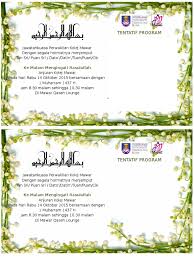 بسم الله الرحمن الرحيم
TENTATIF PROGRAM
Jawatankuasa Perwakilan Kolej Mawar
Dengan segala hormatnya menjemput
Tan Sri/ Puan Sri / Dato'/Datin/Tuan/Puan/Cik
Ke Malam Mengingati Rasulallah
Anjuran Kolej Mawar
Pada hari Rabu 14 Oktober 2015 bersamaan dengan
Muharram 1437 H
jam 8.30 malam sehingga 10.30 malam
Di Mawar Qaseh Lounge
بسم الله الرحمن الرحيم
TENTATIF PROGRAM
Jawatankuasa Perwakilan Kolej Mawar
Dengan segala hormatnya menjemput
Tan Sri/ Puan Sri / Dato'/Datin/Tuan/Puan/Cik
Ke Malam Mengingati Rasulallah
Anjuran Kolej Mawar
Pada hari Rabu 14 Oktober 2015 bersamaan dengan
Muharram 1437 H
jam 8.30 malam sehingga 10.30 malam
Di Mawar Qaseh Lounge